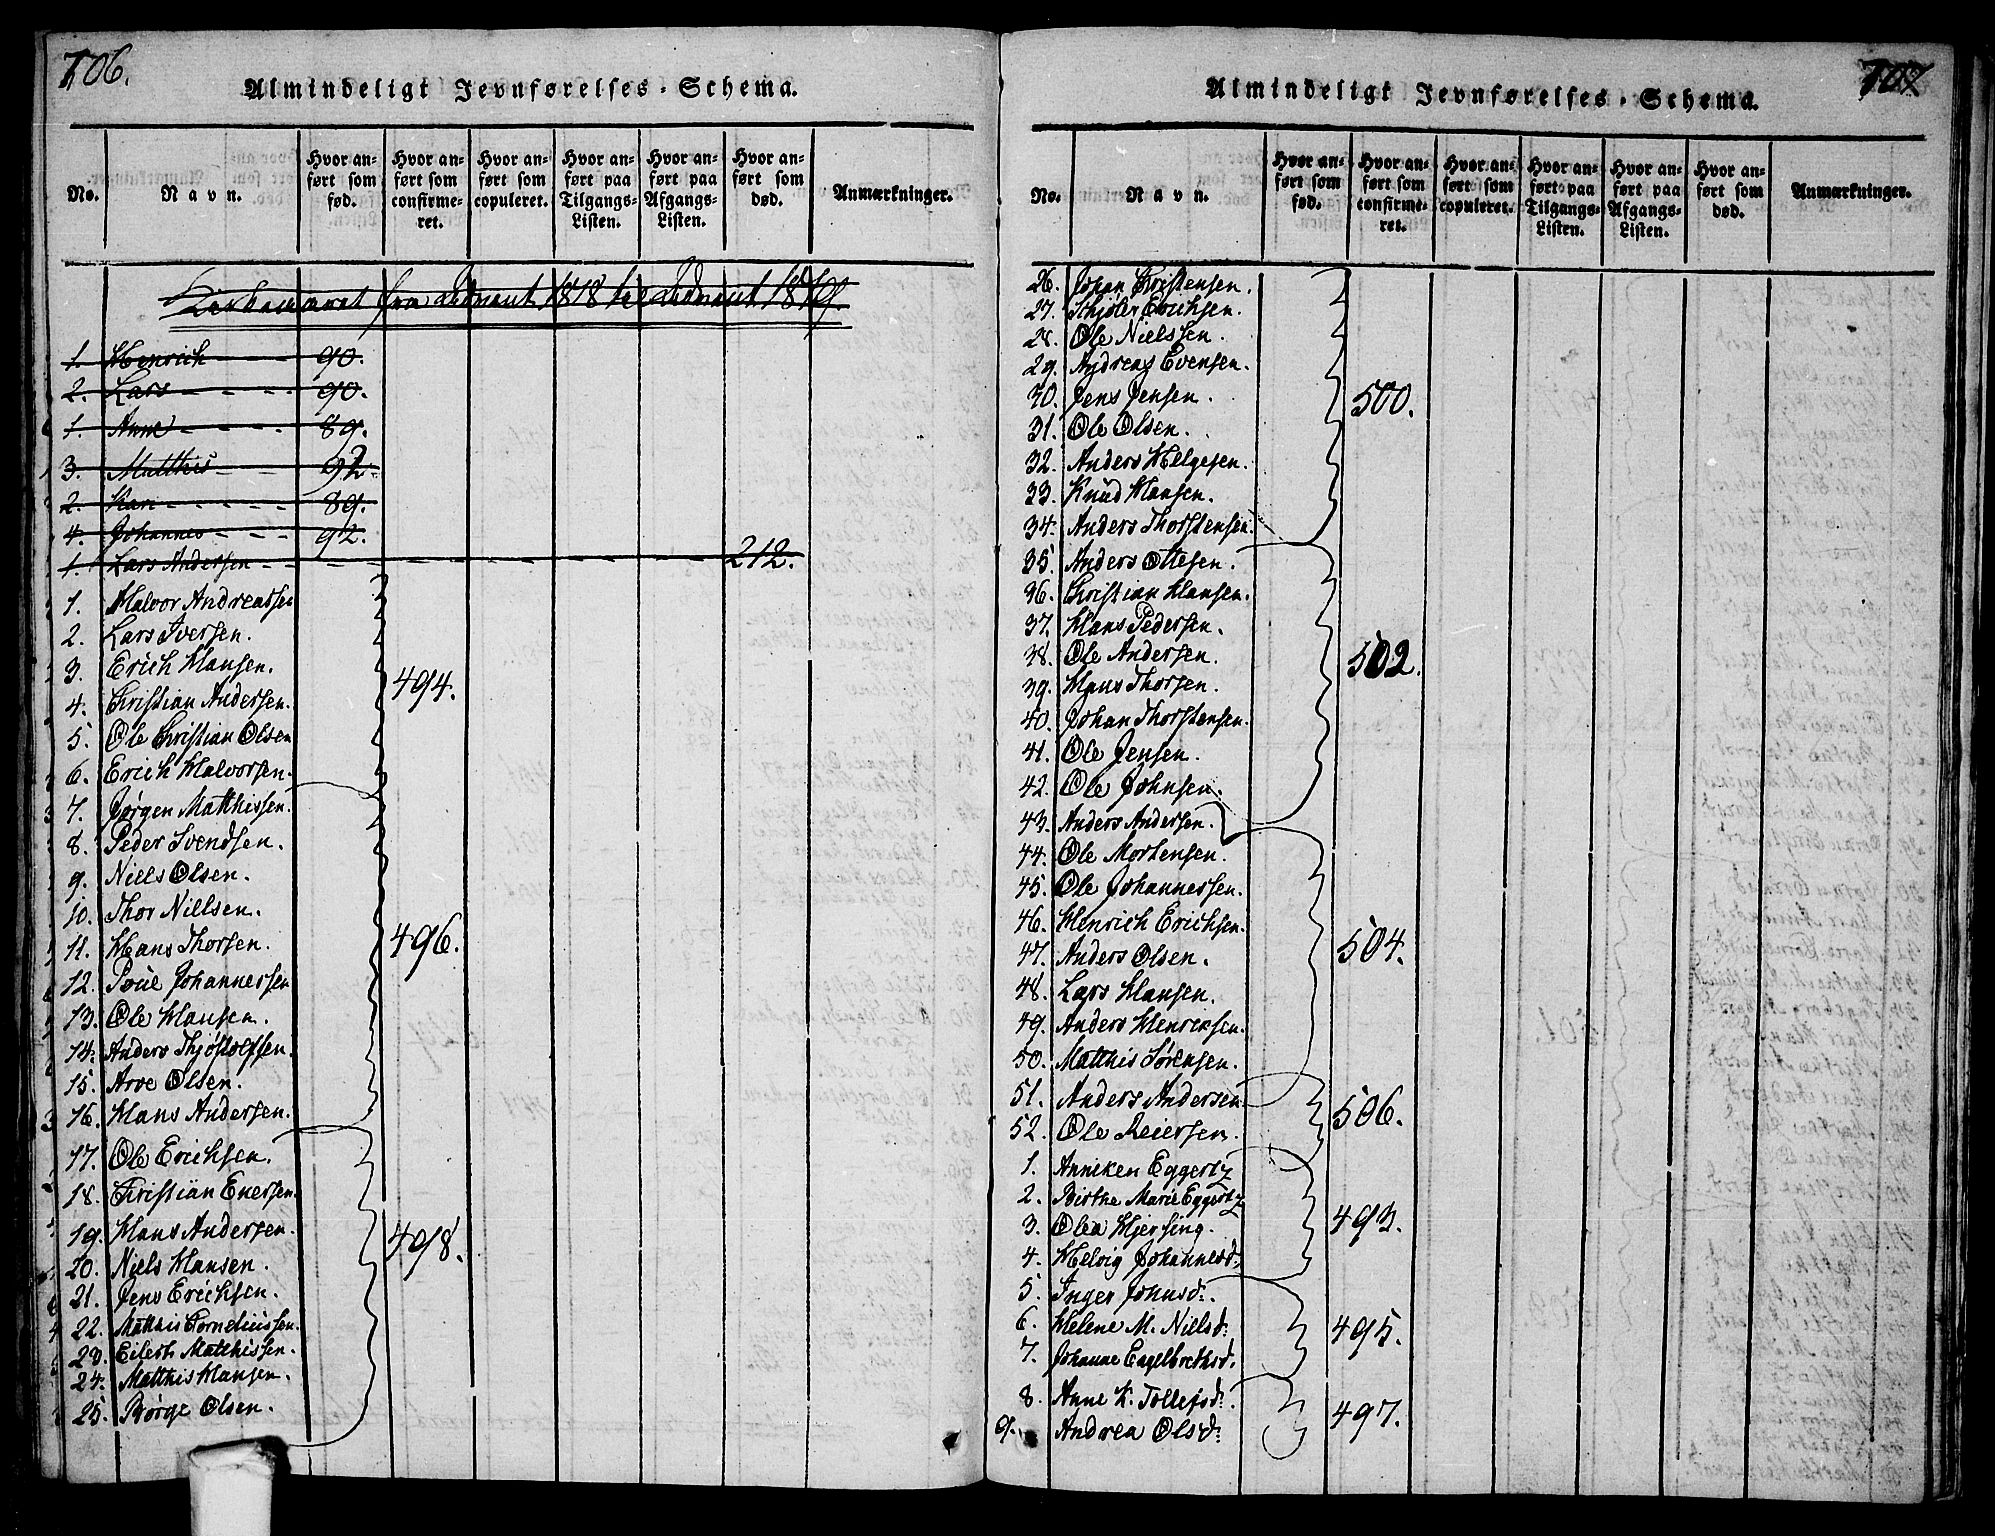 706.
Almindeligt Jevnførelses-Schema.
No.
Navn.
Hvor anført som fød.
Hvor anført som confirmeret.
Hvor anført som copuleret.
Hvor anført paa Tilgangs-Listen.
Hvor anført paa Afgangs-Listen.
Hvor anført som død.
Anmærkninger.
Kirkeaaret fra Advent 1818 til Advent 1819.
1. Henrich 90.
2. Lars 90.
1. Anne 89.
3. Matthis 92.
2. Kari 89.
4. Johannes 92.
1. Lars Andersen 212.
1. Halvor Andreassen
2. Lars Iversen.
3. Erich Hansen.
494.
4. Christian Andersen.
5. Ole Christian Olsen
6. Erich Halvorsen.
7. Jørgen Matthissen.
8. Peder Svendsen.
9. Niels Olsen.
10. Thor Nielsen.
11. Hans Thorsen.
496.
12. Poul Johannessen
13. Ole Hansen.
14. Anders Thjøstolfsen.
15. Arve Olsen.
16. Hans Andersen.
17. Ole Erichsen.
18. Christian Enersen.
19. Hans Andersen.
498.
20. Niels Hansen.
21. Jens Erichsen.
22. Mathis Corneliussen.
23. Eilert Matthissen.
24. Matthis Hansen.
25. Børge Olsen.
707
Almindeligt Jevnførelses-Schema.
No.
Navn.
Hvor anført som fød.
Hvor anført som confirmeret.
Hvor anført som copuleret.
Hvor anført paa Tilgangs-Listen.
Hvor anført paa Afgangs-Listen.
Hvor anført som død.
Anmærkninger.
26. Johan Christensen.
27. Schjøler Erichsen.
28. Ole Nielssen.
29. Andreas Evensen.
30. Jens Jensen.
500.
31. Ole Olsen.
32. Anders Helgesen.
33. Knud Hansen.
34. Anders Thorstensen.
35. Anders Ottesen.
36. Christian Hansen.
37. Hans Pedersen.
38. Ole Andersen.
502.
39. Hans Thorsen.
40. Johan Thorstensen.
41. Ole Jensen.
42. Ole Johnsen.
43. Anders Andersen.
44. Ole Mortensen.
45. Ole Johannessen.
46. Henrich Erichsen.
47. Anders Olsen.
504.
48. Lars Hansen.
49. Anders Henriksen.
50. Matthis Sørensen.
51. Anders Andersen.
506.
52. Ole Reiersen.
1. Anniken Eggertz
2. Birthe Marie Eggertz
3. Olea Hjersing.
493.
4. Helvig Johannesd:
5. Inger Johnsd:
6. Helene M. Nielsd:
495.
7. Johanne Engelbrethsd.
8. Anne K. Tollefsd:
497.
9. Andrea Olsd: